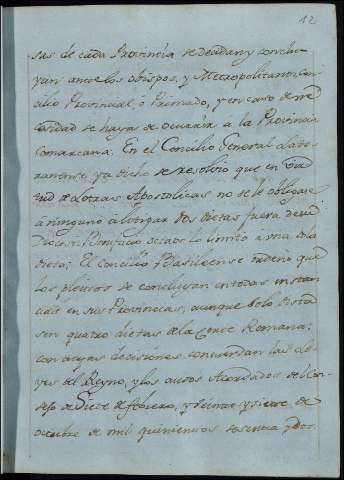 12
sas de cada Provincia se decidan y conclu-
yan ante los obispos, y Metropolitano en Con-
cilio Provincial, ò Primado, y en caso de ne-
cesidad se haya de ocurrir à la Provincia
comarcana. En el Concilio General Latera-
nense, ya dicho se resolvio que en
tud de Letras Apostolicas no se le obligase
à ninguno à litigar dos dietas fuera de su
Diocesi: Bonifacio octavo lo limitó à una sola
dieta; El Concilio Basileense ordenò que
los pleitos se concluyan en todas instan-
cias en sus Provincias, aunque solo dista-
sen quatro dietas de la Corte Romana;
con cuyas decisiones concuerdan las Le-
yes del Reyno, y los autos Acordados del Con-
sejo de Siete de febrero, y veinte y siete de
octubre de mil quinientos sesenta y dos.